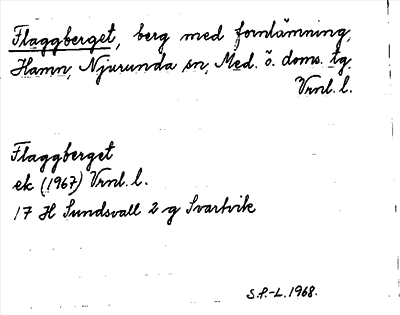 Flaggberget, berg med fornlämning,
Hamn, Njurunda sn, Med. ö. doms. tg.
Vrnl. l.
Flaggberget
ek (1967) Vrnl. l.
17 H Sundsvall 2 g Svartvik
S.P.-L. 1968.